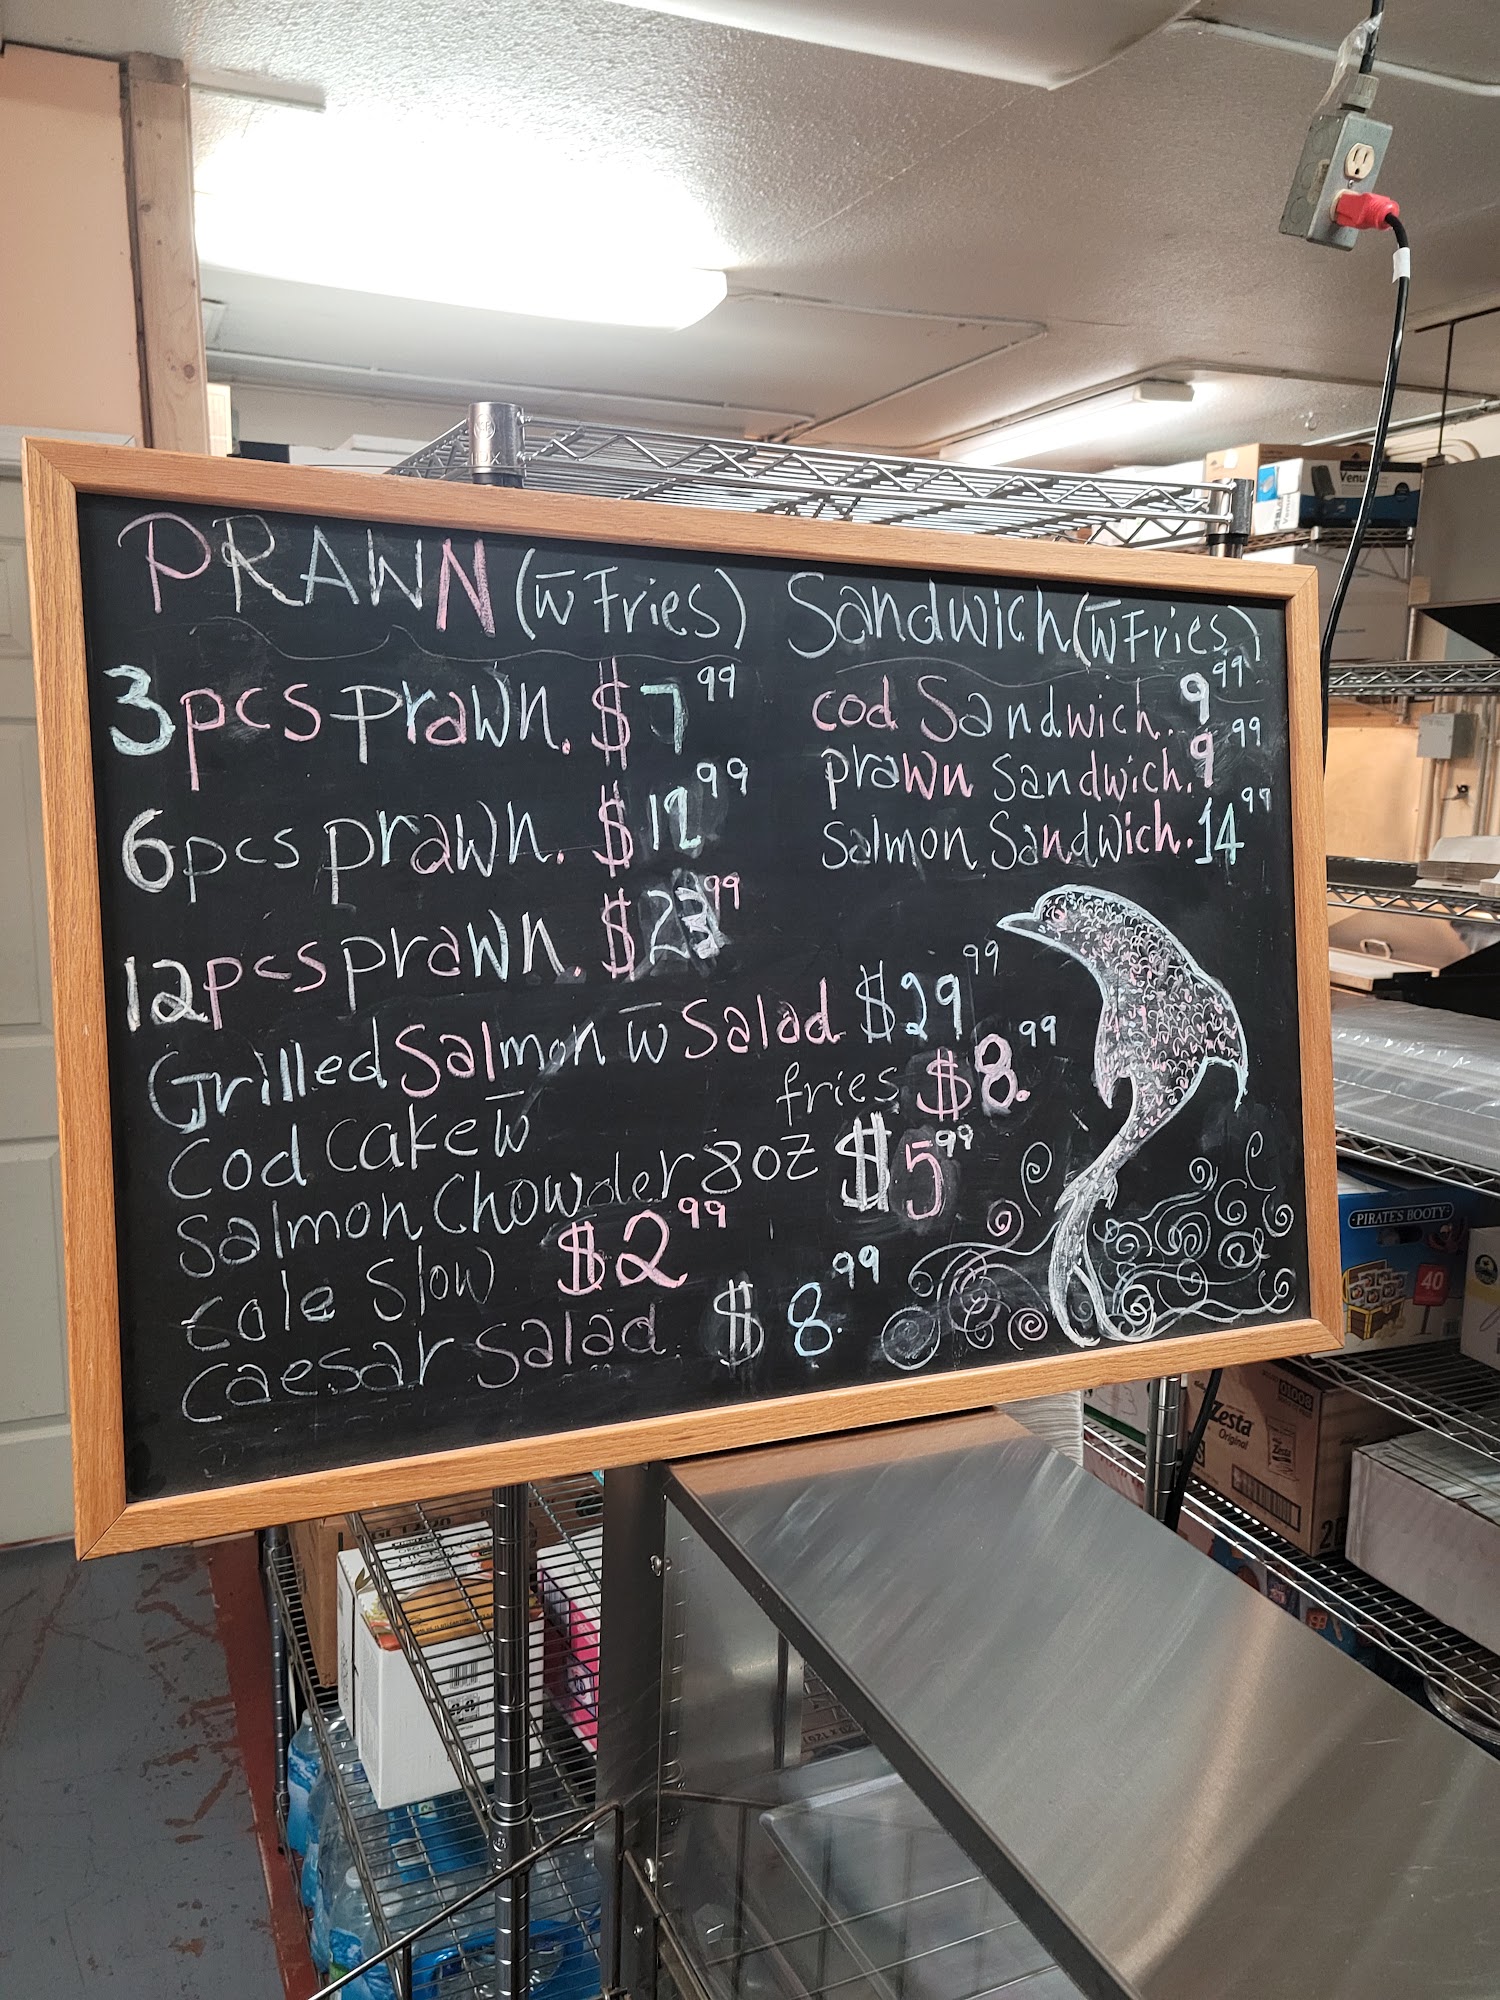 PRAWN (w̅ Fries)
3pcs prawn. $7.99
6pcs prawn. $12.99
12pcs prawn. $23.99
Sandwich (w̅ Fries)
cod Sandwich. 9.99
prawn Sandwich. 9.99
Salmon Sandwich. 14.97
Grilled Salmon w̅ Salad $29.99
Cod Cake w̅ fries $8.99
Salmon Chowder 8oz $5.99
cole Slow $2.99
caesar Salad $8.99
Venu
PIRATE'S BOOTY
40
Zesta
Original